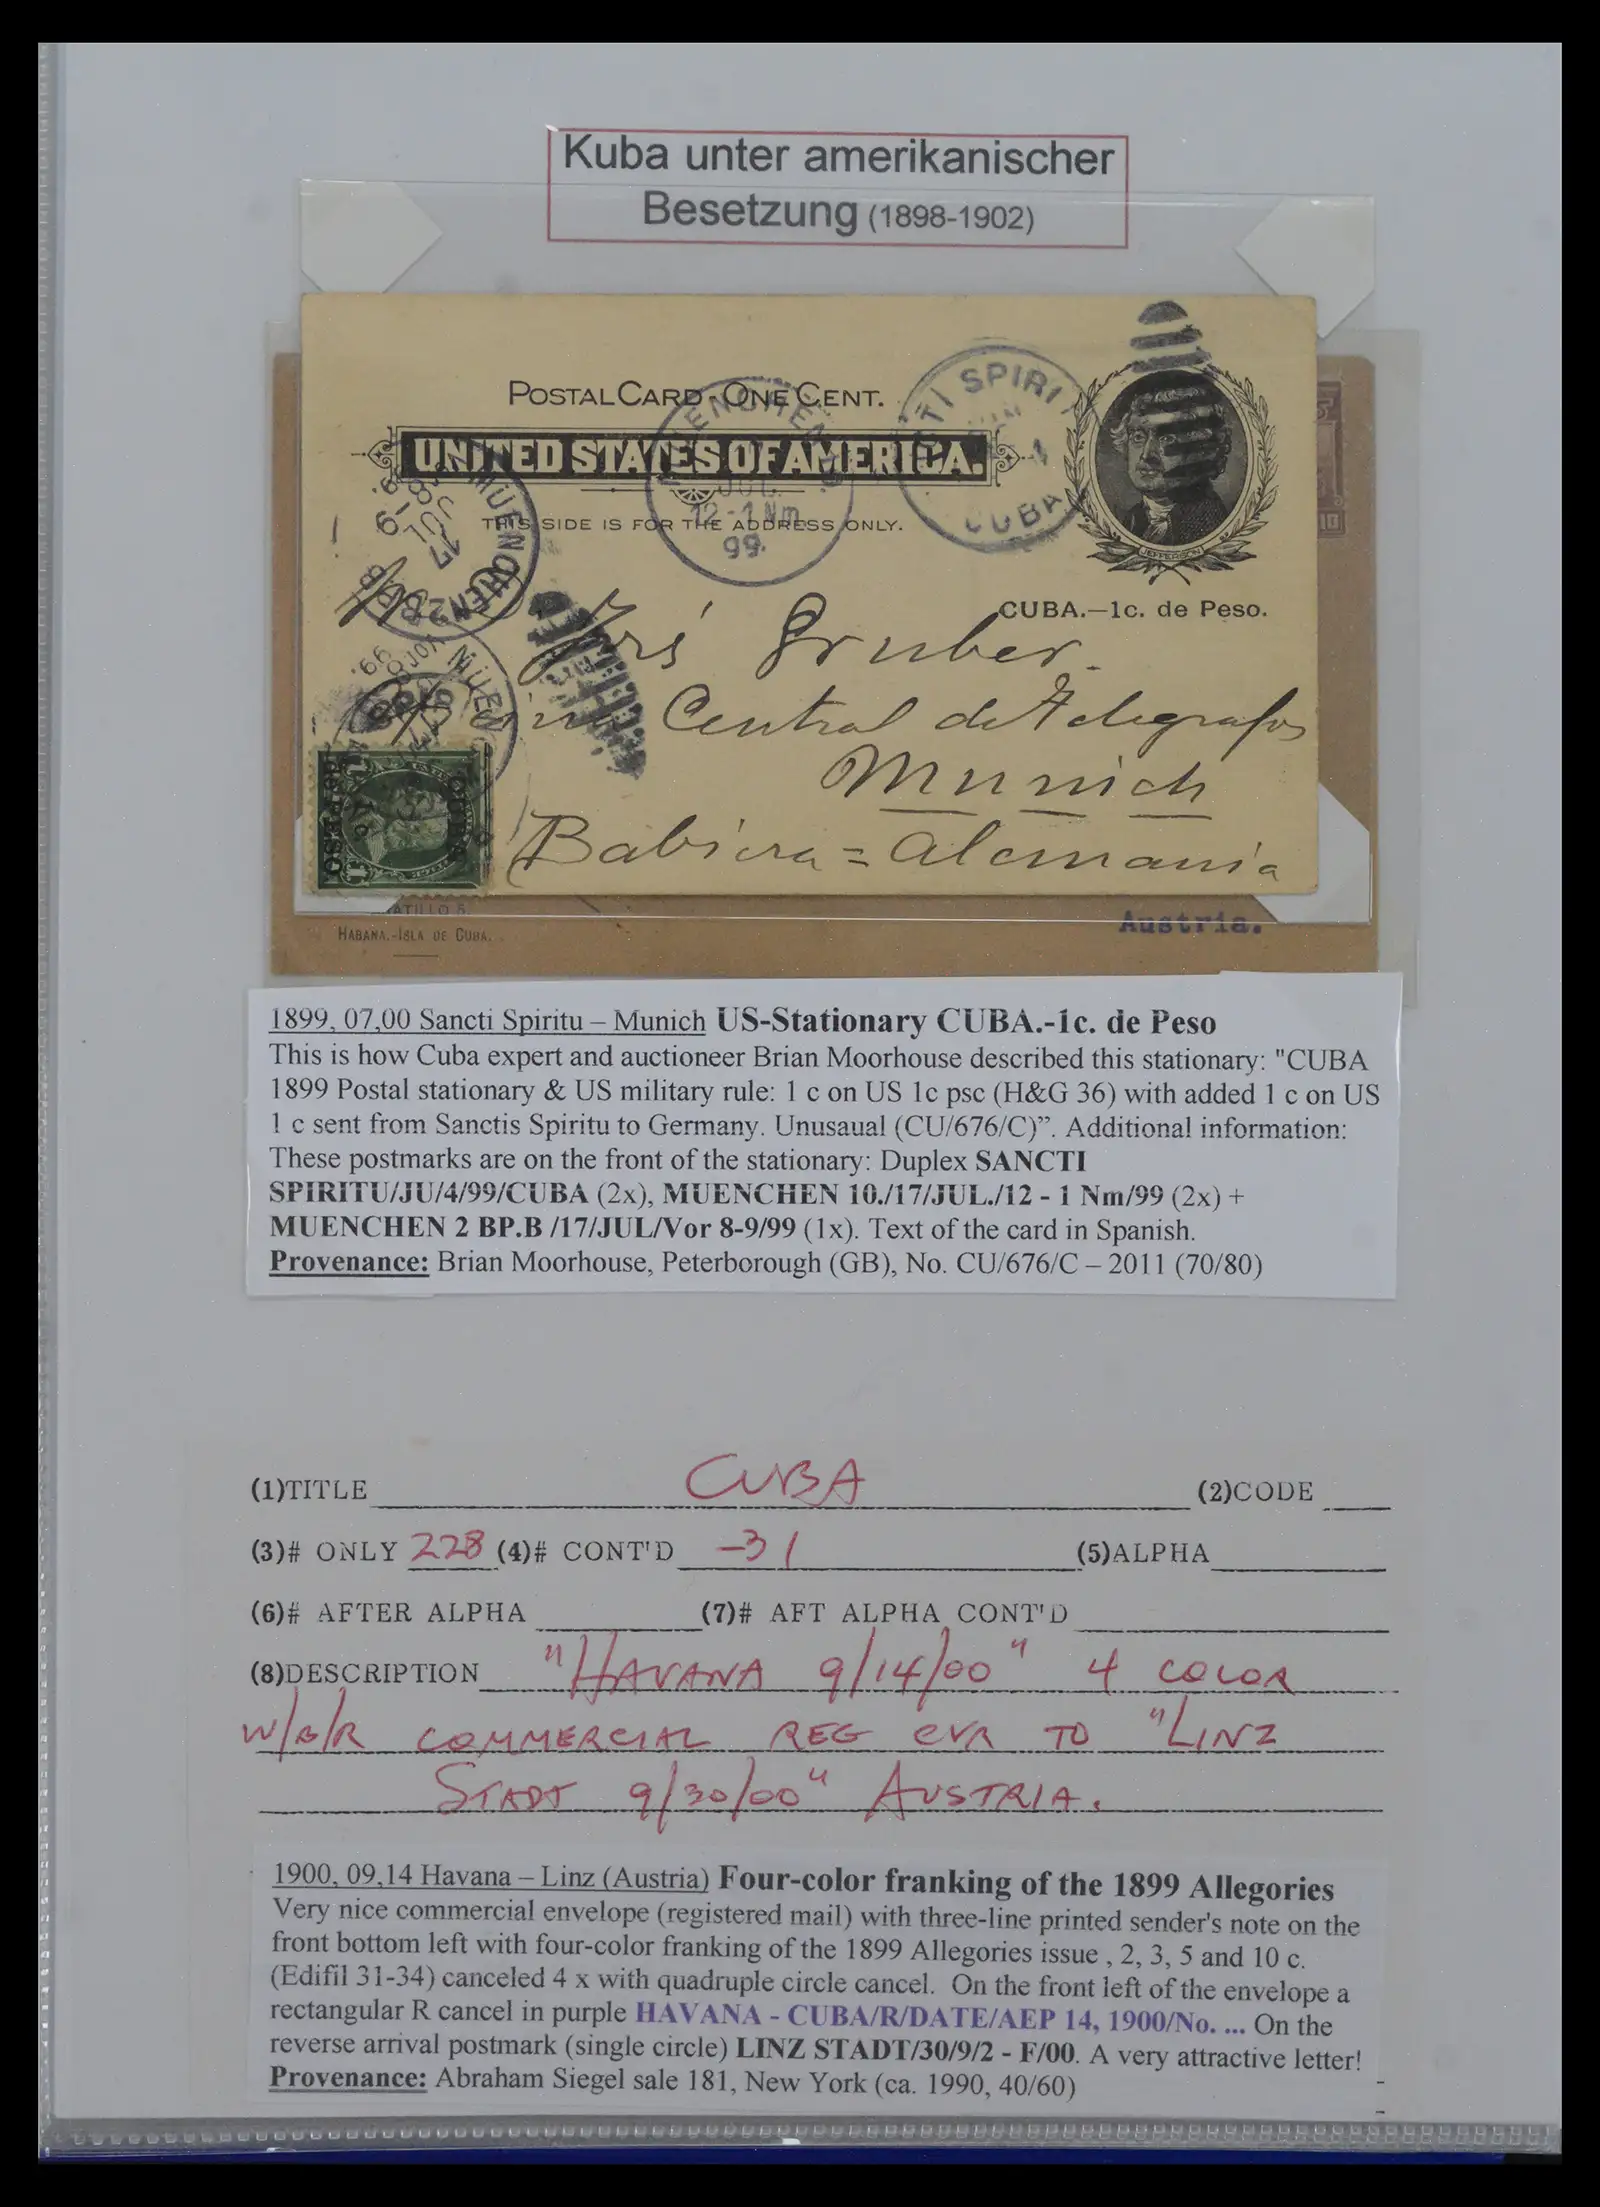 Kuba unter amerikanischer
Besetzung (1898-1902)
POSTAL CARD - ONE CENT.
UNITED STATES OF AMERICA.
THIS SIDE IS FOR THE ADDRESS ONLY.
TI SPIRIT
CUBA
MUENCHEN
JUL.
12-1 Nm
99.
MUENCHEN 2 B.P.B
17
JUL
8-9
JEFFERSON
CUBA.—1c. de Peso.
Gruber.
Central de Telegrafos
Munich
Babiera = Alemania
CUBA
1c.
de PESO.
ATILLO 5.
HABANA.-ISLA DE CUBA.
Austria.
1899, 07,00 Sancti Spiritu – Munich US-Stationary CUBA.-1c. de Peso
This is how Cuba expert and auctioneer Brian Moorhouse described this stationary: "CUBA
1899 Postal stationary & US military rule: 1 c on US 1c psc (H&G 36) with added 1 c on US
1 c sent from Sanctis Spiritu to Germany. Unusaual (CU/676/C)”. Additional information:
These postmarks are on the front of the stationary: Duplex SANCTI
SPIRITU/JU/4/99/CUBA (2x), MUENCHEN 10./17/JUL./12 - 1 Nm/99 (2x) +
MUENCHEN 2 BP.B /17/JUL/Vor 8-9/99 (1x). Text of the card in Spanish.
Provenance: Brian Moorhouse, Peterborough (GB), No. CU/676/C – 2011 (70/80)
(1)TITLE CUBA (2)CODE
(3)# ONLY 228 (4)# CONT'D -31 (5)ALPHA
(6)# AFTER ALPHA (7)# AFT ALPHA CONT'D
(8)DESCRIPTION "HAVANA 9/14/00" 4 COLOR
W/B/R COMMERCIAL REG CVR TO "LINZ
STADT 9/30/00" AUSTRIA.
1900, 09,14 Havana – Linz (Austria) Four-color franking of the 1899 Allegories
Very nice commercial envelope (registered mail) with three-line printed sender's note on the
front bottom left with four-color franking of the 1899 Allegories issue , 2, 3, 5 and 10 c.
(Edifil 31-34) canceled 4 x with quadruple circle cancel. On the front left of the envelope a
rectangular R cancel in purple HAVANA - CUBA/R/DATE/AEP 14, 1900/No. ... On the
reverse arrival postmark (single circle) LINZ STADT/30/9/2 - F/00. A very attractive letter!
Provenance: Abraham Siegel sale 181, New York (ca. 1990, 40/60)